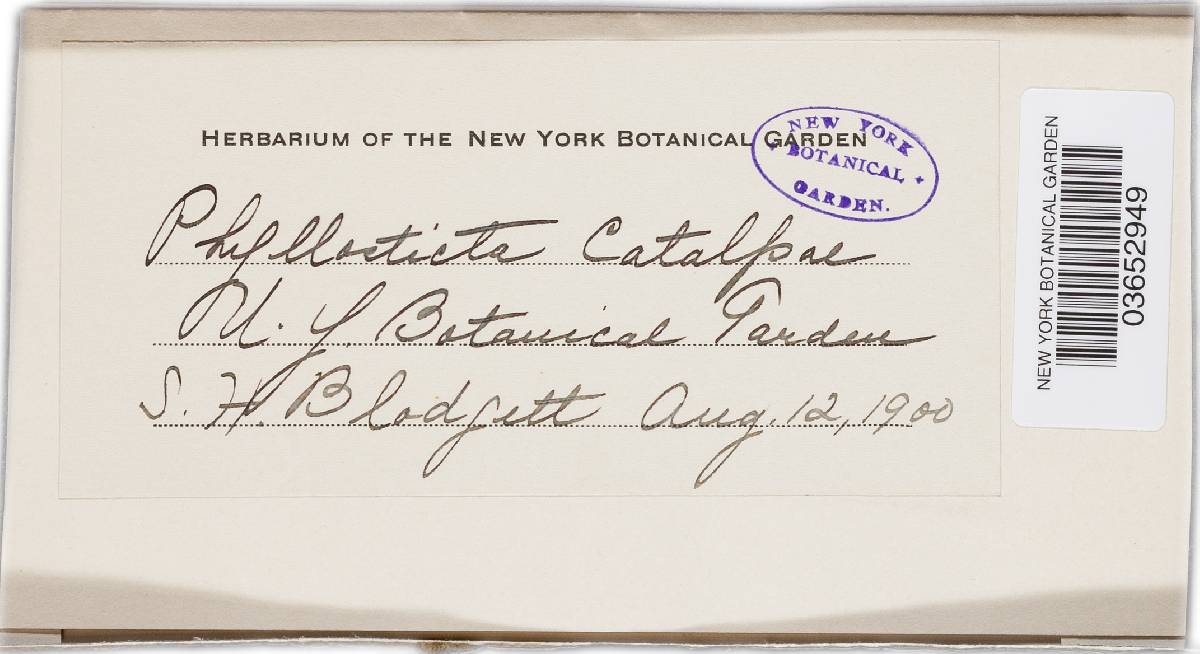 HERBARIUM OF THE NEW YORK BOTANICAL GARDEN
NEW YORK
BOTANICAL
GARDEN.
Phyllosticta Catalpae
N. Y. Botanical Garden
S. H. Blodgett Aug. 12, 1900
NEW YORK BOTANICAL GARDEN
03652949